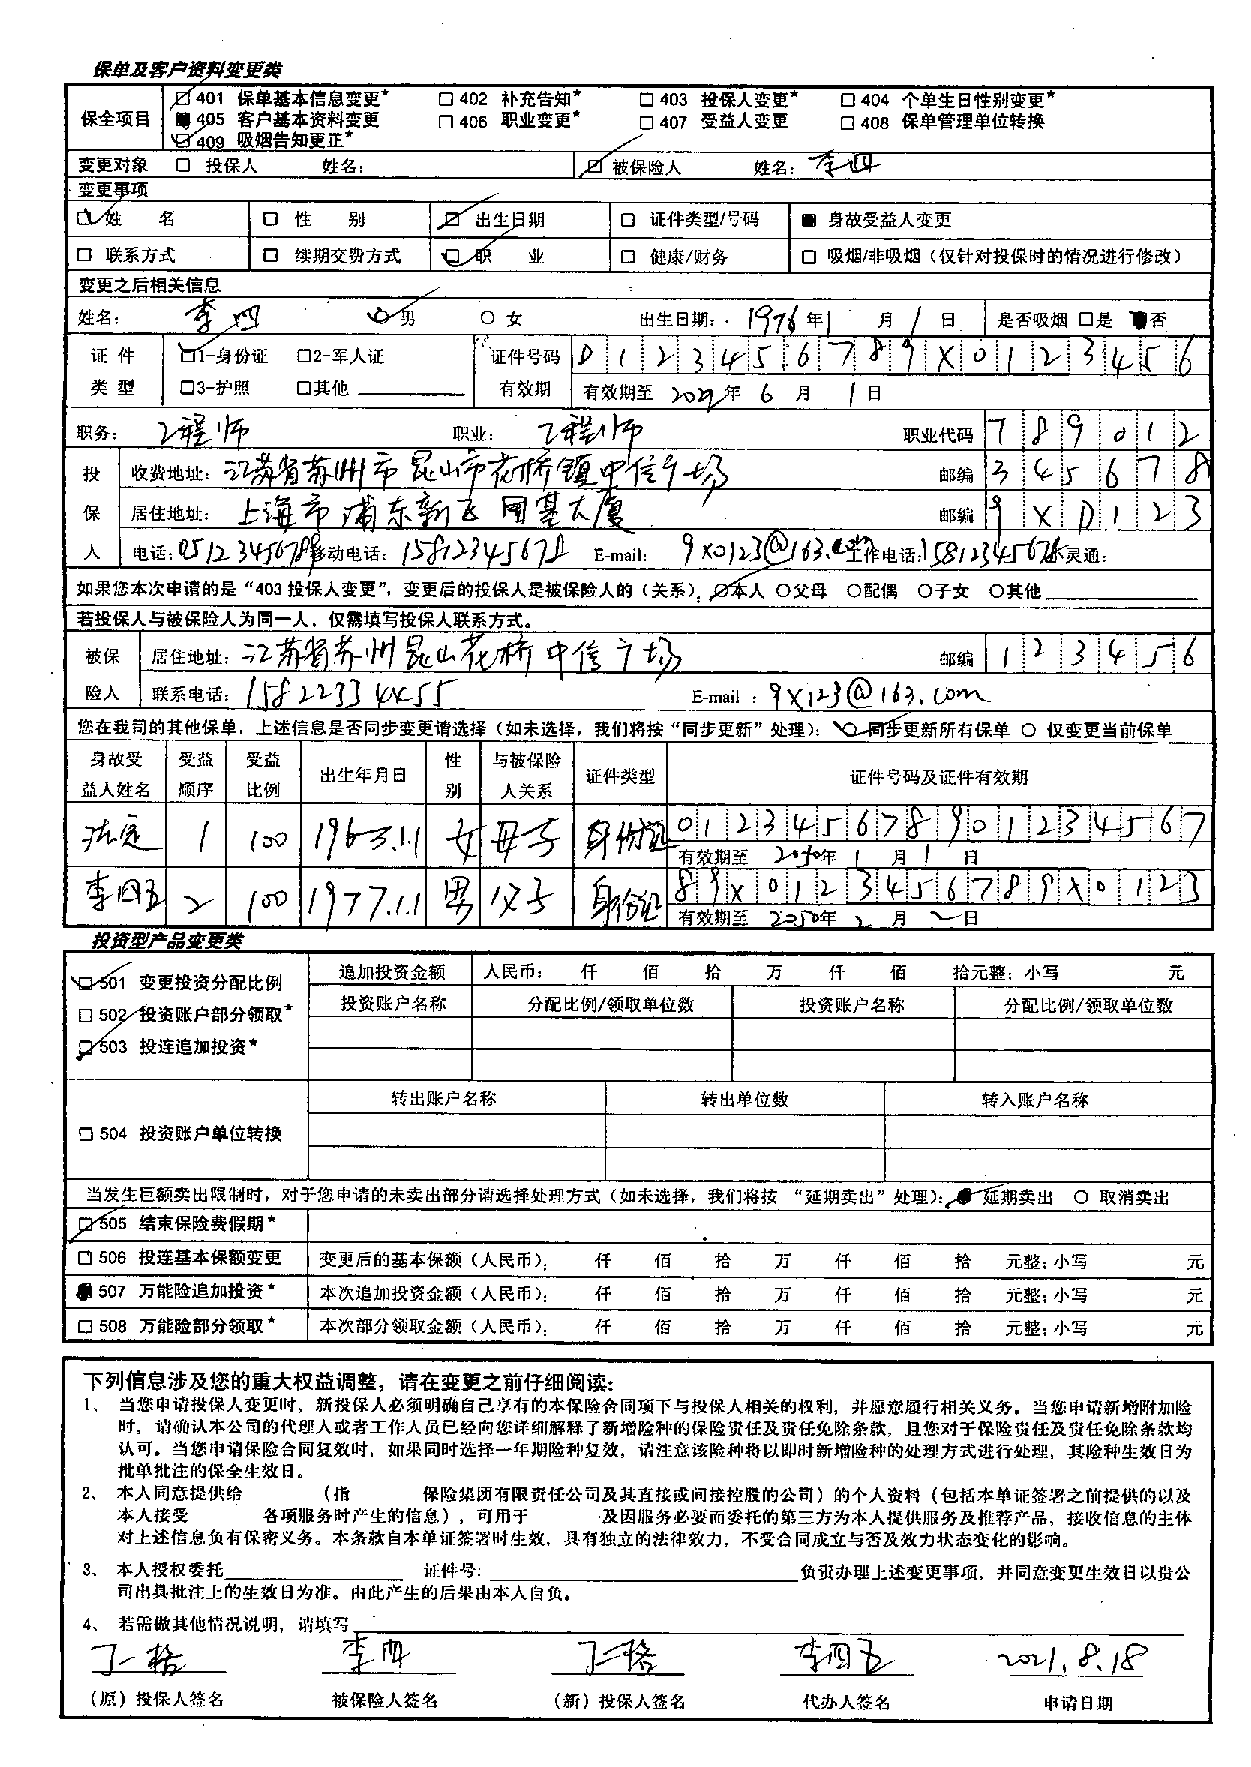 保单及客户资料变更类
保全项目
401 保单基本信息变更* 402 补充告知* 403 投保人变更* 404 个单生日性别变更*
405 客户基本资料变更 406 职业变更* 407 受益人变更 408 保单管理单位转换
409 吸烟告知更正*
变更对象 投保人 姓名: 被保险人 姓名: 李四
变更事项
姓 名 性 别 出生日期 证件类型/号码 身故受益人变更
联系方式 续期交费方式 职 业 健康/财务 吸烟/非吸烟（仅针对投保时的情况进行修改）
变更之后相关信息
姓名: 李四 男 女 出生日期: 1976年1月1日 是否吸烟 是 否
证件类型 1-身份证 2-军人证 3-护照 其他
证件号码 0123456789X0123456
有效期 有效期至 2022年6月1日
职务: 工程师 职业: 工程师 职业代码 789012
投保人 收费地址: 江苏省苏州市昆山市花桥镇中信广场 邮编 345678
居住地址: 上海市浦东新区国基大厦 邮编 9X0123
电话: 移动电话: 15812345678 E-mail: 9X0123@163.com 工作电话: 灵通:
如果您本次申请的是“403 投保人变更”, 变更后的投保人是被保险人的（关系）: 本人 父母 配偶 子女 其他
若投保人与被保险人为同一人, 仅需填写投保人联系方式。
被保险人 居住地址: 江苏省苏州昆山花桥中信广场 邮编 123456
联系电话: E-mail: 9X123@163.com
您在我司的其他保单, 上述信息是否同步变更请选择（如未选择, 我们将按“同步更新”处理）: 同步更新所有保单 仅变更当前保单
身故受益人姓名 受益顺序 受益比例 出生年月日 性别 与被保险人关系 证件类型 证件号码及证件有效期
1 100 1963.1.1 女 母子 身份证 012345678901234567
有效期至 2050年1月1日
李四五 2 100 1977.1.1 男 父子 身份证 89X0123456789X0123
有效期至 2050年2月2日
投资型产品变更类
501 变更投资分配比例
502 投资账户部分领取*
503 投连追加投资*
追加投资金额 人民币: 仟 佰 拾 万 仟 佰 拾元整; 小写 元
投资账户名称 分配比例/领取单位数 投资账户名称 分配比例/领取单位数
504 投资账户单位转换
转出账户名称 转出单位数 转入账户名称
当发生巨额卖出限制时, 对于您申请的未卖出部分请选择处理方式（如未选择, 我们将按 “延期卖出” 处理）: 延期卖出 取消卖出
505 结束保险费假期*
506 投连基本保额变更 变更后的基本保额（人民币）: 仟 佰 拾 万 仟 佰 拾 元整; 小写 元
507 万能险追加投资* 本次追加投资金额（人民币）: 仟 佰 拾 万 仟 佰 拾 元整; 小写 元
508 万能险部分领取* 本次部分领取金额（人民币）: 仟 佰 拾 万 仟 佰 拾 元整; 小写 元
下列信息涉及您的重大权益调整, 请在变更之前仔细阅读:
1、 当您申请投保人变更时, 新投保人必须明确自己享有的本保险合同项下与投保人相关的权利, 并愿意履行相关义务。当您申请新增附加险
时, 请确认本公司的代理人或者工作人员已经向您详细解释了新增险种的保险责任及责任免除条款, 且您对于保险责任及责任免除条款均
认可。当您申请保险合同复效时, 如果同时选择一年期险种复效, 请注意该险种将以即时新增险种的处理方式进行处理, 其险种生效日为
批单批注的保全生效日。
2、 本人同意提供给 （指 保险集团有限责任公司及其直接或间接控股的公司）的个人资料（包括本单证签署之前提供的以及
本人接受 各项服务时产生的信息）, 可用于 及因服务必要而委托的第三方为本人提供服务及推荐产品, 接收信息的主体
对上述信息负有保密义务。本条款自本单证签署时生效, 具有独立的法律效力, 不受合同成立与否及效力状态变化的影响。
3、 本人授权委托 证件号: 负责办理上述变更事项, 并同意变更生效日以贵公
司出具批注上的生效日为准。由此产生的后果由本人自负。
4、 若需做其他情况说明, 请填写
丁一格 李四 丁二格 李四五 2021.8.18
（原）投保人签名 被保险人签名 （新）投保人签名 代办人签名 申请日期